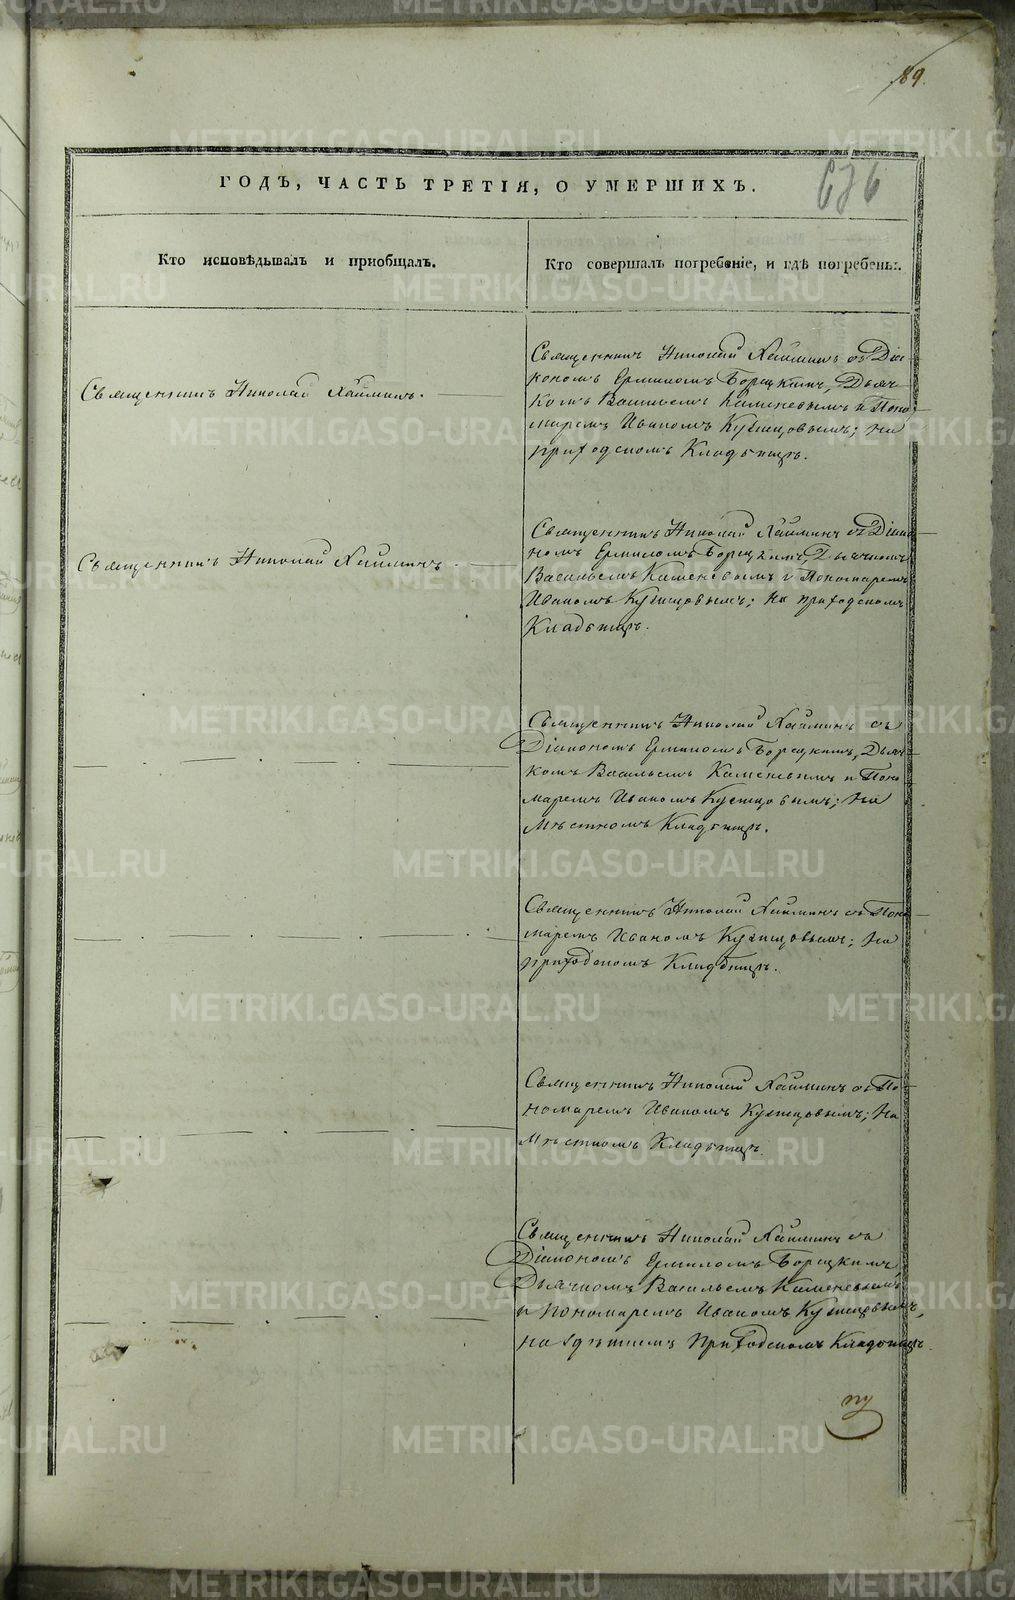 89.
676
ГОДЪ, ЧАСТЬ ТРЕТІЯ, О УМЕРШИХЪ.
Кто исповѣдывалъ и пріобщалъ.
Кто совершалъ погребеніе, и гдѣ погребены.
Священникъ Николай Хлыминъ.
Священникъ Николай Хлыминъ съ Діа-
кономъ Ермиломъ Борецкимъ, Дьяч-
комъ Васильемъ Каменевымъ и Поно-
маремъ Иваномъ Кузнецовымъ; на
приходскомъ Кладбищѣ.
Священникъ Николай Хлыминъ
Священникъ Николай Хлыминъ съ Діако-
номъ Ермиломъ Борецкимъ, Дьячкомъ
Васильемъ Каменевымъ и Пономаремъ
Иваномъ Кузнецовымъ; на приходскомъ
Кладбищѣ.
Священникъ Николай Хлыминъ съ
Діакономъ Ермиломъ Борецкимъ, Дьяч-
комъ Васильемъ Каменевымъ и Поно-
маремъ Иваномъ Кузнецовымъ; на
Мѣстномъ Кладбищѣ.
Священникъ Николай Хлыминъ съ Поно-
маремъ Иваномъ Кузнецовымъ; на
приходскомъ Кладбищѣ.
Священникъ Николай Хлыминъ съ По-
номаремъ Иваномъ Кузнецовымъ; на
Мѣстномъ Кладбищѣ.
Священникъ Николай Хлыминъ съ
Діакономъ Ермиломъ Борецкимъ
Дьячкомъ Васильемъ Каменевымъ
и Пономаремъ Иваномъ Кузнецовымъ,
на здѣшнемъ Приходскомъ Кладбищѣ.
METRIKI.GASO-URAL.RU